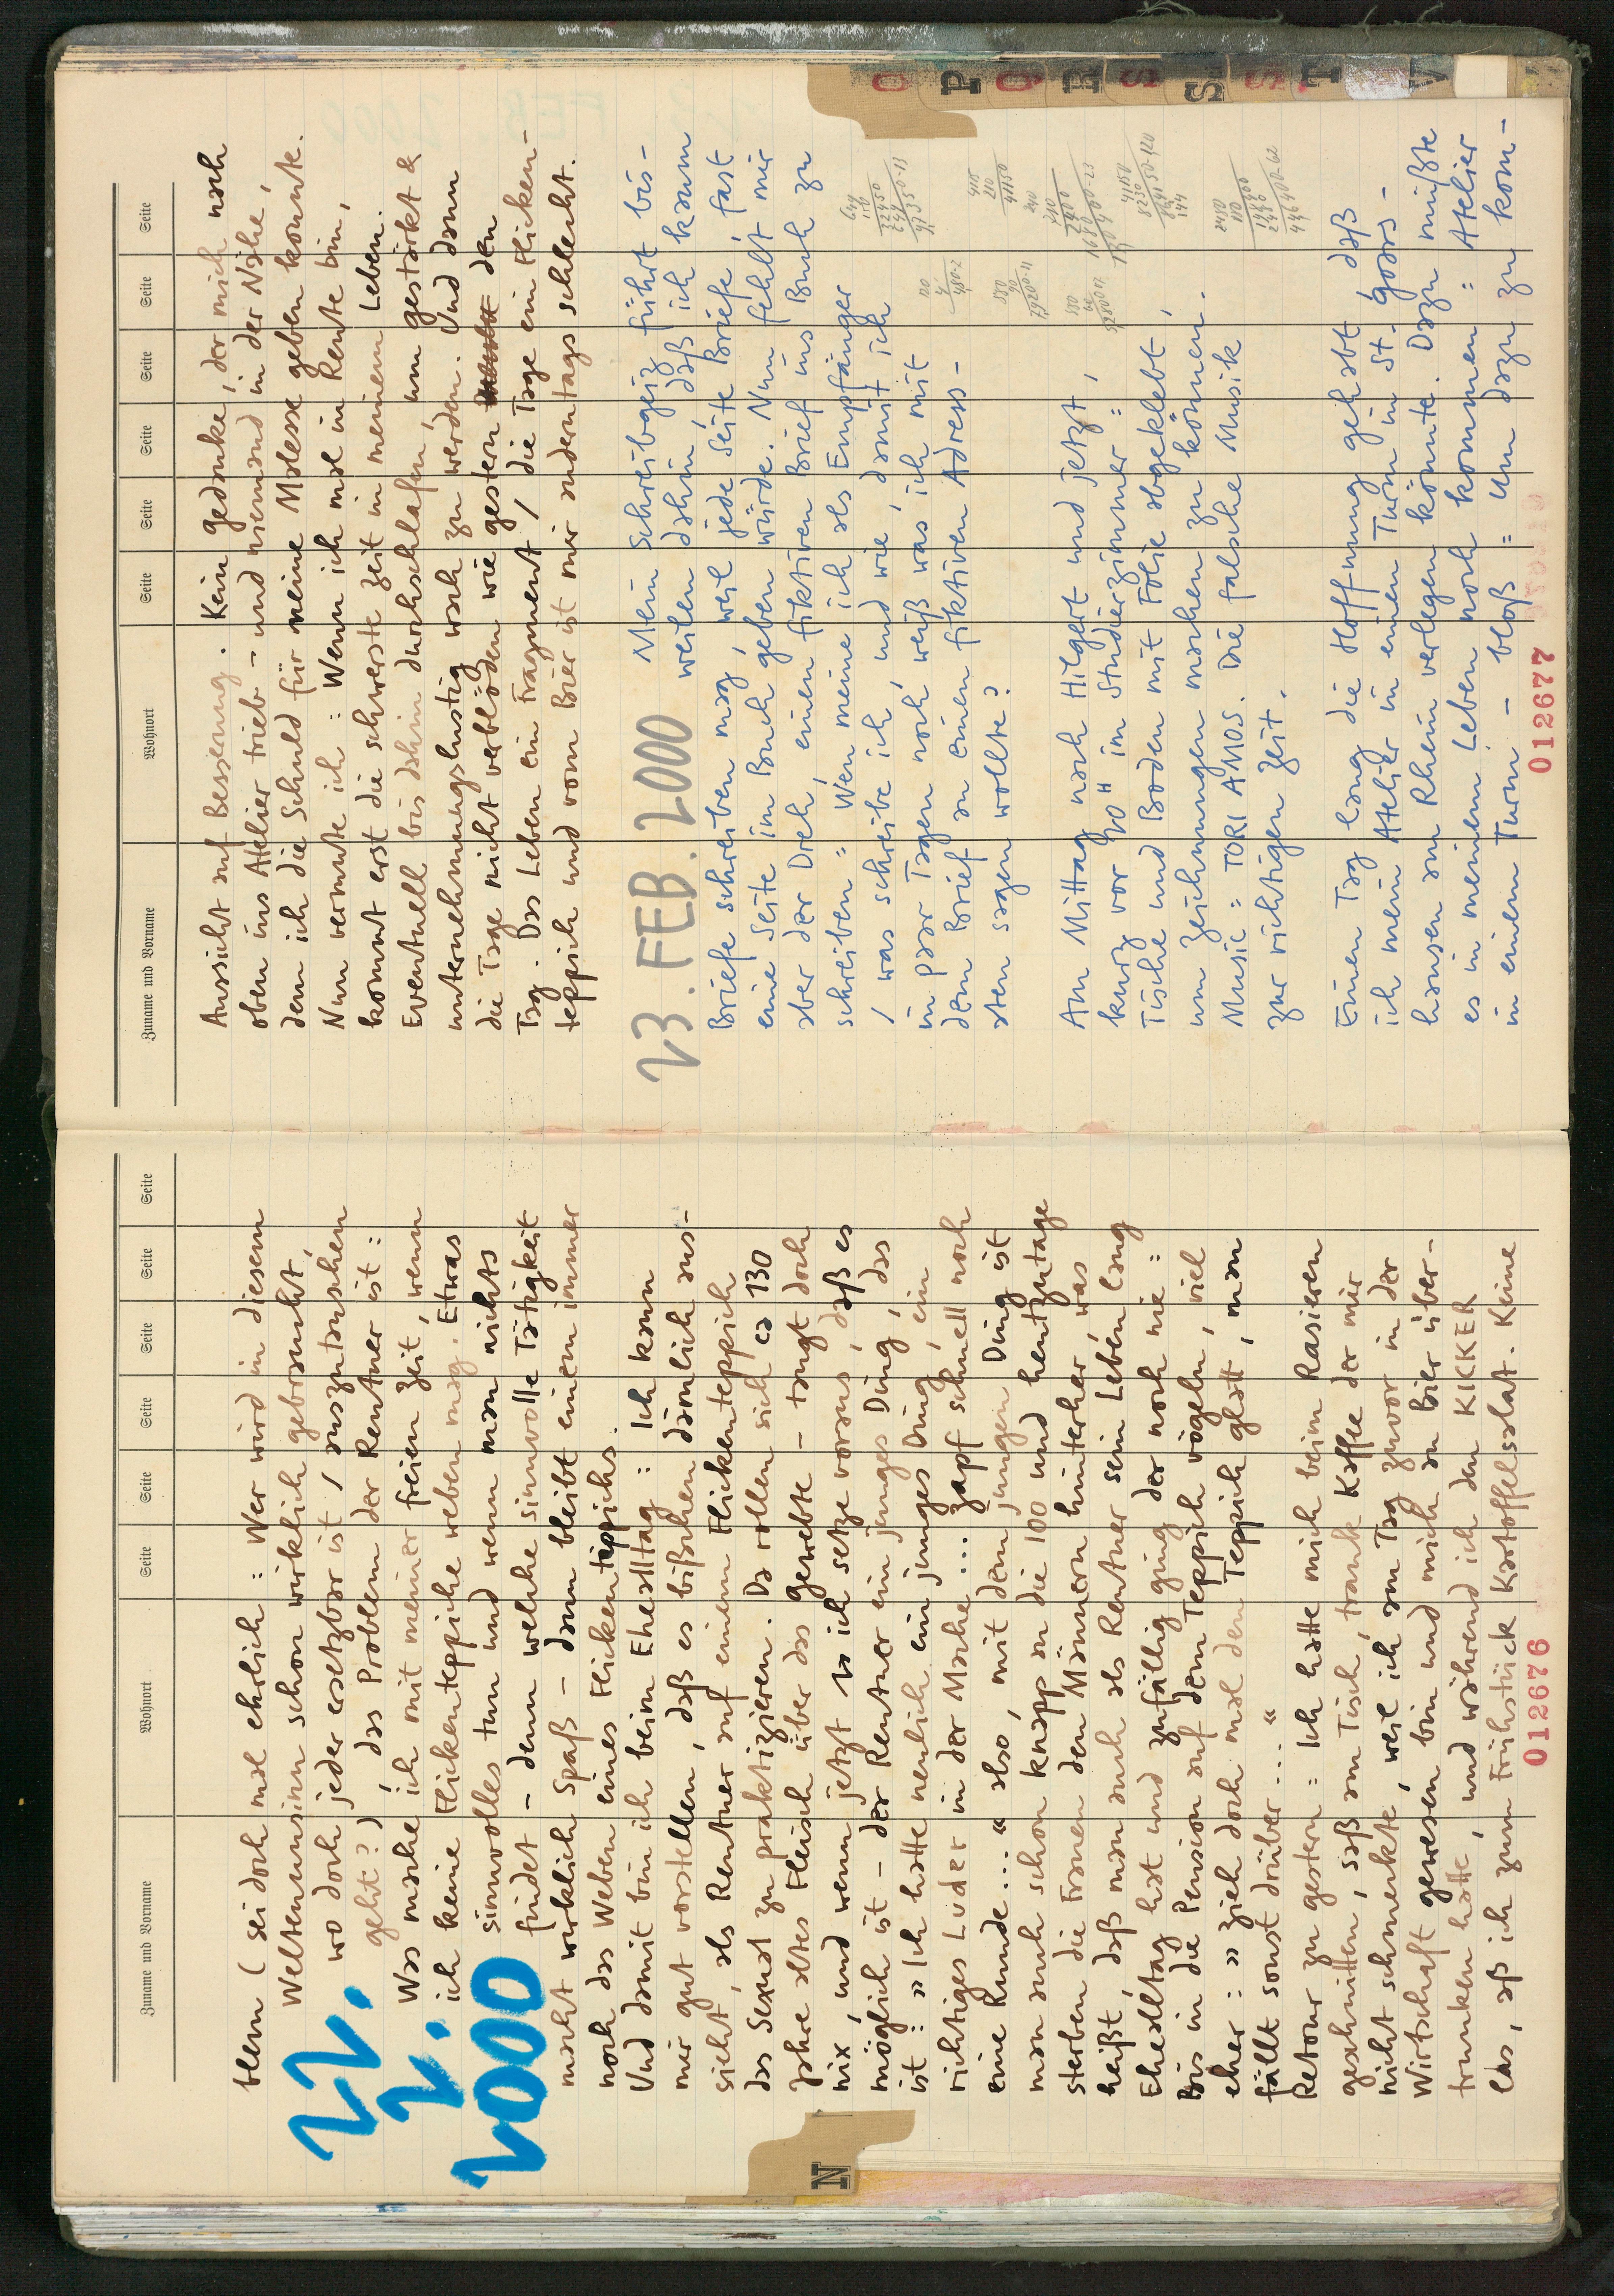 Zuname und Vorname Wohnort Seite Seite Seite Seite Seite Seite
blem (sei doch mal ehrlich : Wer wird in diesem
Weltenunsinn schon wirklich gebraucht,
wo doch jeder ersetzbar ist / auszutauschen
geht ?), das Problem der Rentner ist :
Was mache ich mit meiner freien Zeit, wenn
ich keine Flickenteppiche weben mag. Etwas
sinnvolles tun und wenn man nichts
findet – denn welche sinnvolle Tätigkeit
macht wirklich Spaß – dann bleibt einem immer
noch das Weben eines Flickenteppichs.
22.
2.
2000
Und damit bin ich beim Ehealltag : Ich kann
mir gut vorstellen, daß es bißchen dämlich aus-
sieht, als Rentner auf einem Flickenteppich
das Sexual zu praktizieren. Da rollen sich ca 130
Jahre altes Fleisch über das gewebte – taugt doch
nix, und wenn jetzt so ich setze voraus, daß es
möglich ist – der Rentner ein junges Ding, das
ist : » Ich hatte neulich ein junges Ding, ein
richtiges Luder in der Mache ... zapf schnell noch
eine Runde ... « also, mit dem jungen Ding ist
man auch schon knapp an die 100 und heutzutage
sterben die Frauen den Männern hinterher, was
heißt, daß man auch als Rentner sein Leben lang
Ehealltag hat und zufällig ging der noch nie :
Bis in die Pension auf dem Teppich vögeln, viel
eher : » Zieh doch mal den Teppich glatt, man
fällt sonst drüber ... «
Retour zu gestern : Ich hatte mich beim Rasieren
geschnitten, saß am Tisch, trank Kaffee der mir
nicht schmeckte, weil ich am Tag zuvor in der
Wirtschaft gewesen bin und mich an Bier über-
trunken hatte, und während ich den KICKER
las, aß ich zum Frühstück Kartoffelsalat. Keine
012676
N
Zuname und Vorname Wohnort Seite Seite Seite Seite Seite Seite
Aussicht auf Besserung. Kein Gedanke, der mich nach
oben ins Atelier trieb – und niemand in der Nähe,
dem ich die Schuld für meine Malesse geben konnte.
Nun vermute ich : Wenn ich mal in Rente bin,
kommt erst die schwerste Zeit in meinem Leben.
Eventuell bis dahin durchschlafen, um gestärkt &
unternehmungslustig wach zu werden. Und dann
die Tage nicht verblöden wie gestern den
Tag. Das Leben ein Fragment / die Tage ein Flicken-
teppich und vom Bier ist mir anderntags schlecht.
23. FEB. 2000
Mein Schreibgeiz führt bis-
weilen dahin, daß ich kaum
Briefe schreiben mag, weil jede Seite Briefe, fast
eine Seite im Buch geben würde. Nun fehlt mir
aber der Dreh, einen fiktiven Brief ins Buch zu
schreiben : Wen meine ich als Empfänger
/ was schreibe ich, und wie, damit ich
in paar Tagen noch weiß was ich mit
dem Brief an einen fiktiven Adress-
aten sagen wollte?
Am Mittag nach Hilgert und jetzt,
kurz vor 20 ʰ im Studierzimmer :
Tische und Boden mit Folie abgeklebt,
um Zeichnungen machen zu können.
Music : TORI AMOS. Die falsche Musik
zur richtigen Zeit.
Einen Tag lang die Hoffnung gehabt, daß
ich mein Atelier in einen Turm in St. Goars-
hausen am Rhein verlegen könnte. Dazu müßte
es in meinem Leben noch kommen : Atelier
in einem Turm – bloß : Um dazu zu kom-
012677
O
P
Q
R
S
S
S
T
V